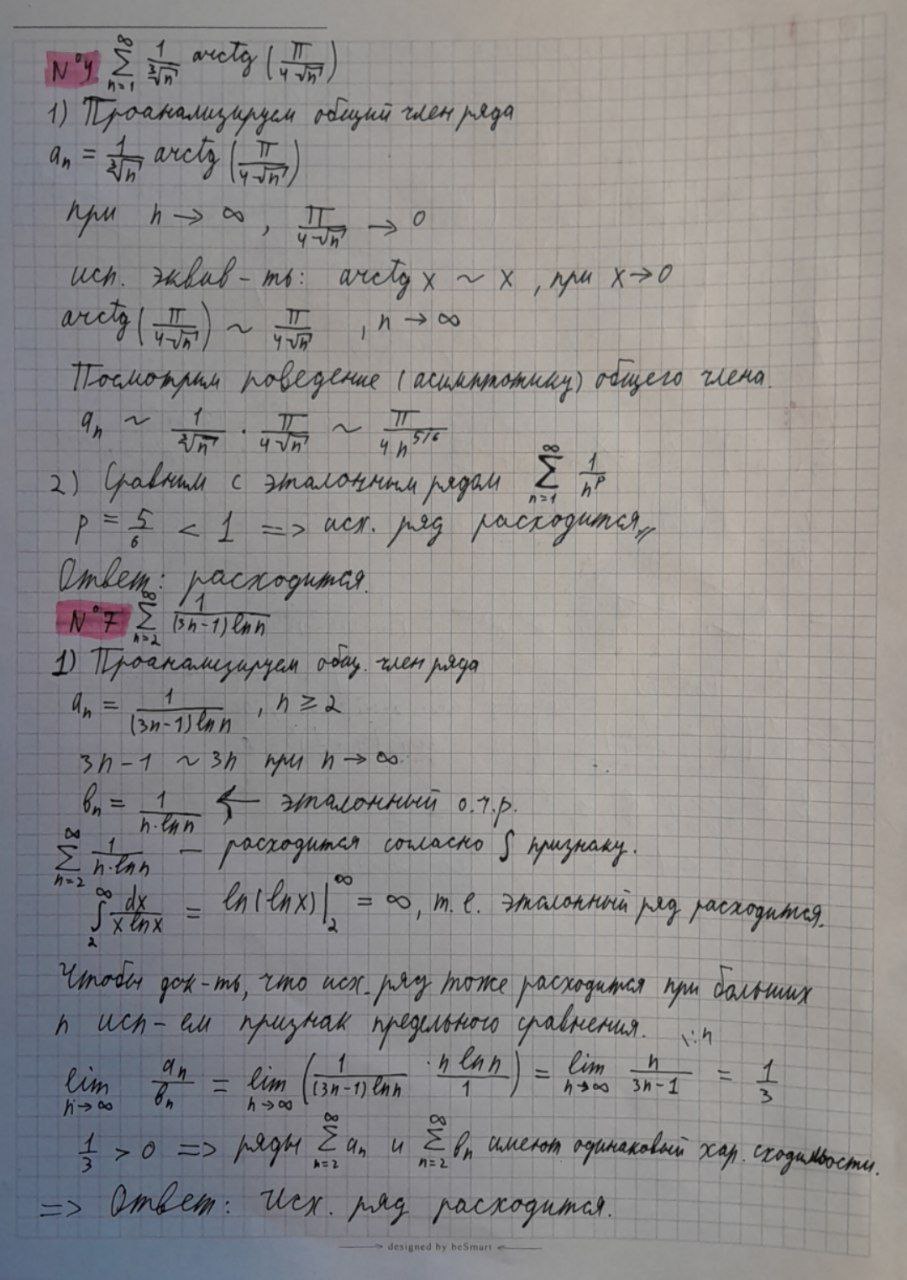 N°4 ∑_{n=1}^{∞} 1/∛n arctg (π/(4√n))
1) Проанализируем общий член ряда
a_n = 1/∛n arctg (π/(4√n))
при n → ∞, π/(4√n) → 0
исп. эквив-ть: arctg x ~ x, при x→0
arctg (π/(4√n)) ~ π/(4√n), n → ∞
Посмотрим поведение (асимптотику) общего члена.
a_n ~ 1/∛n · π/(4√n) ~ π/(4 n^{5/6})
2) Сравним с эталонным рядом ∑_{n=1}^{∞} 1/n^p
p = 5/6 < 1 => исх. ряд расходится //
Ответ: расходится.
N°7 ∑_{n=2}^{∞} 1/((3n-1) ln n)
1) Проанализируем общ. член ряда
a_n = 1/((3n-1) ln n), n ≥ 2
3n-1 ~ 3n при n → ∞
b_n = 1/(n·ln n) ← эталонный о.ч.р.
∑_{n=2}^{∞} 1/(n·ln n) — расходится согласно ∫ признаку.
∫_2^∞ dx/(x ln x) = ln(ln x) |_2^∞ = ∞, т.е. эталонный ряд расходится.
Чтобы док-ть, что исх. ряд тоже расходится при больших
n исп-ем признак предельного сравнения. \:n
lim_{n→∞} a_n/b_n = lim_{n→∞} (1/((3n-1) ln n) · n ln n/1) = lim_{n→∞} n/(3n-1) = 1/3
1/3 > 0 => ряды ∑_{n=2}^{∞} a_n и ∑_{n=2}^{∞} b_n имеют одинаковый хар. сходимости.
=> Ответ: Исх. ряд расходится.
designed by beSmart